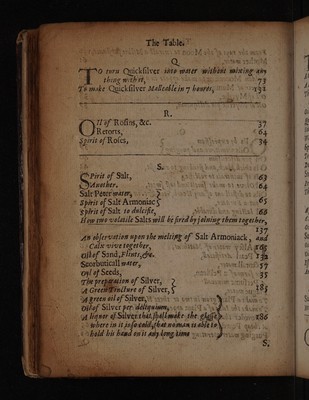 The Table.
Q
To turn Quicksilver into water without mixing any
thing with it, 73
To make Quicksilver Malleable in 7 houres, 131
R.
Oil of Rosins, &c. 37
Retorts, 64
Spirit of Roses, 34
S.
Spirit of Salt, 63
Another. 64
Salt Peter water,
Spirit of Salt Armoniac 65
Spirit of Salt to dulcifie, 68
How two volatile Salts will be fixed by joining them together,
137
An observation upon the melting of Salt Armoniack, and
Calx vive together,
Oil of Sand, Flints, &c. 132
Scorbuticall water, 57
Oil of Seeds, 35
The preparation of Silver,
A Green Tincture of Silver, 185
A green oil of Silver,
Oil of Silver per deliquium,
A liquor of Silver that shall make the glasse 186
where in it is so cold, that no man is able to
hold his hand on it any long time
S.